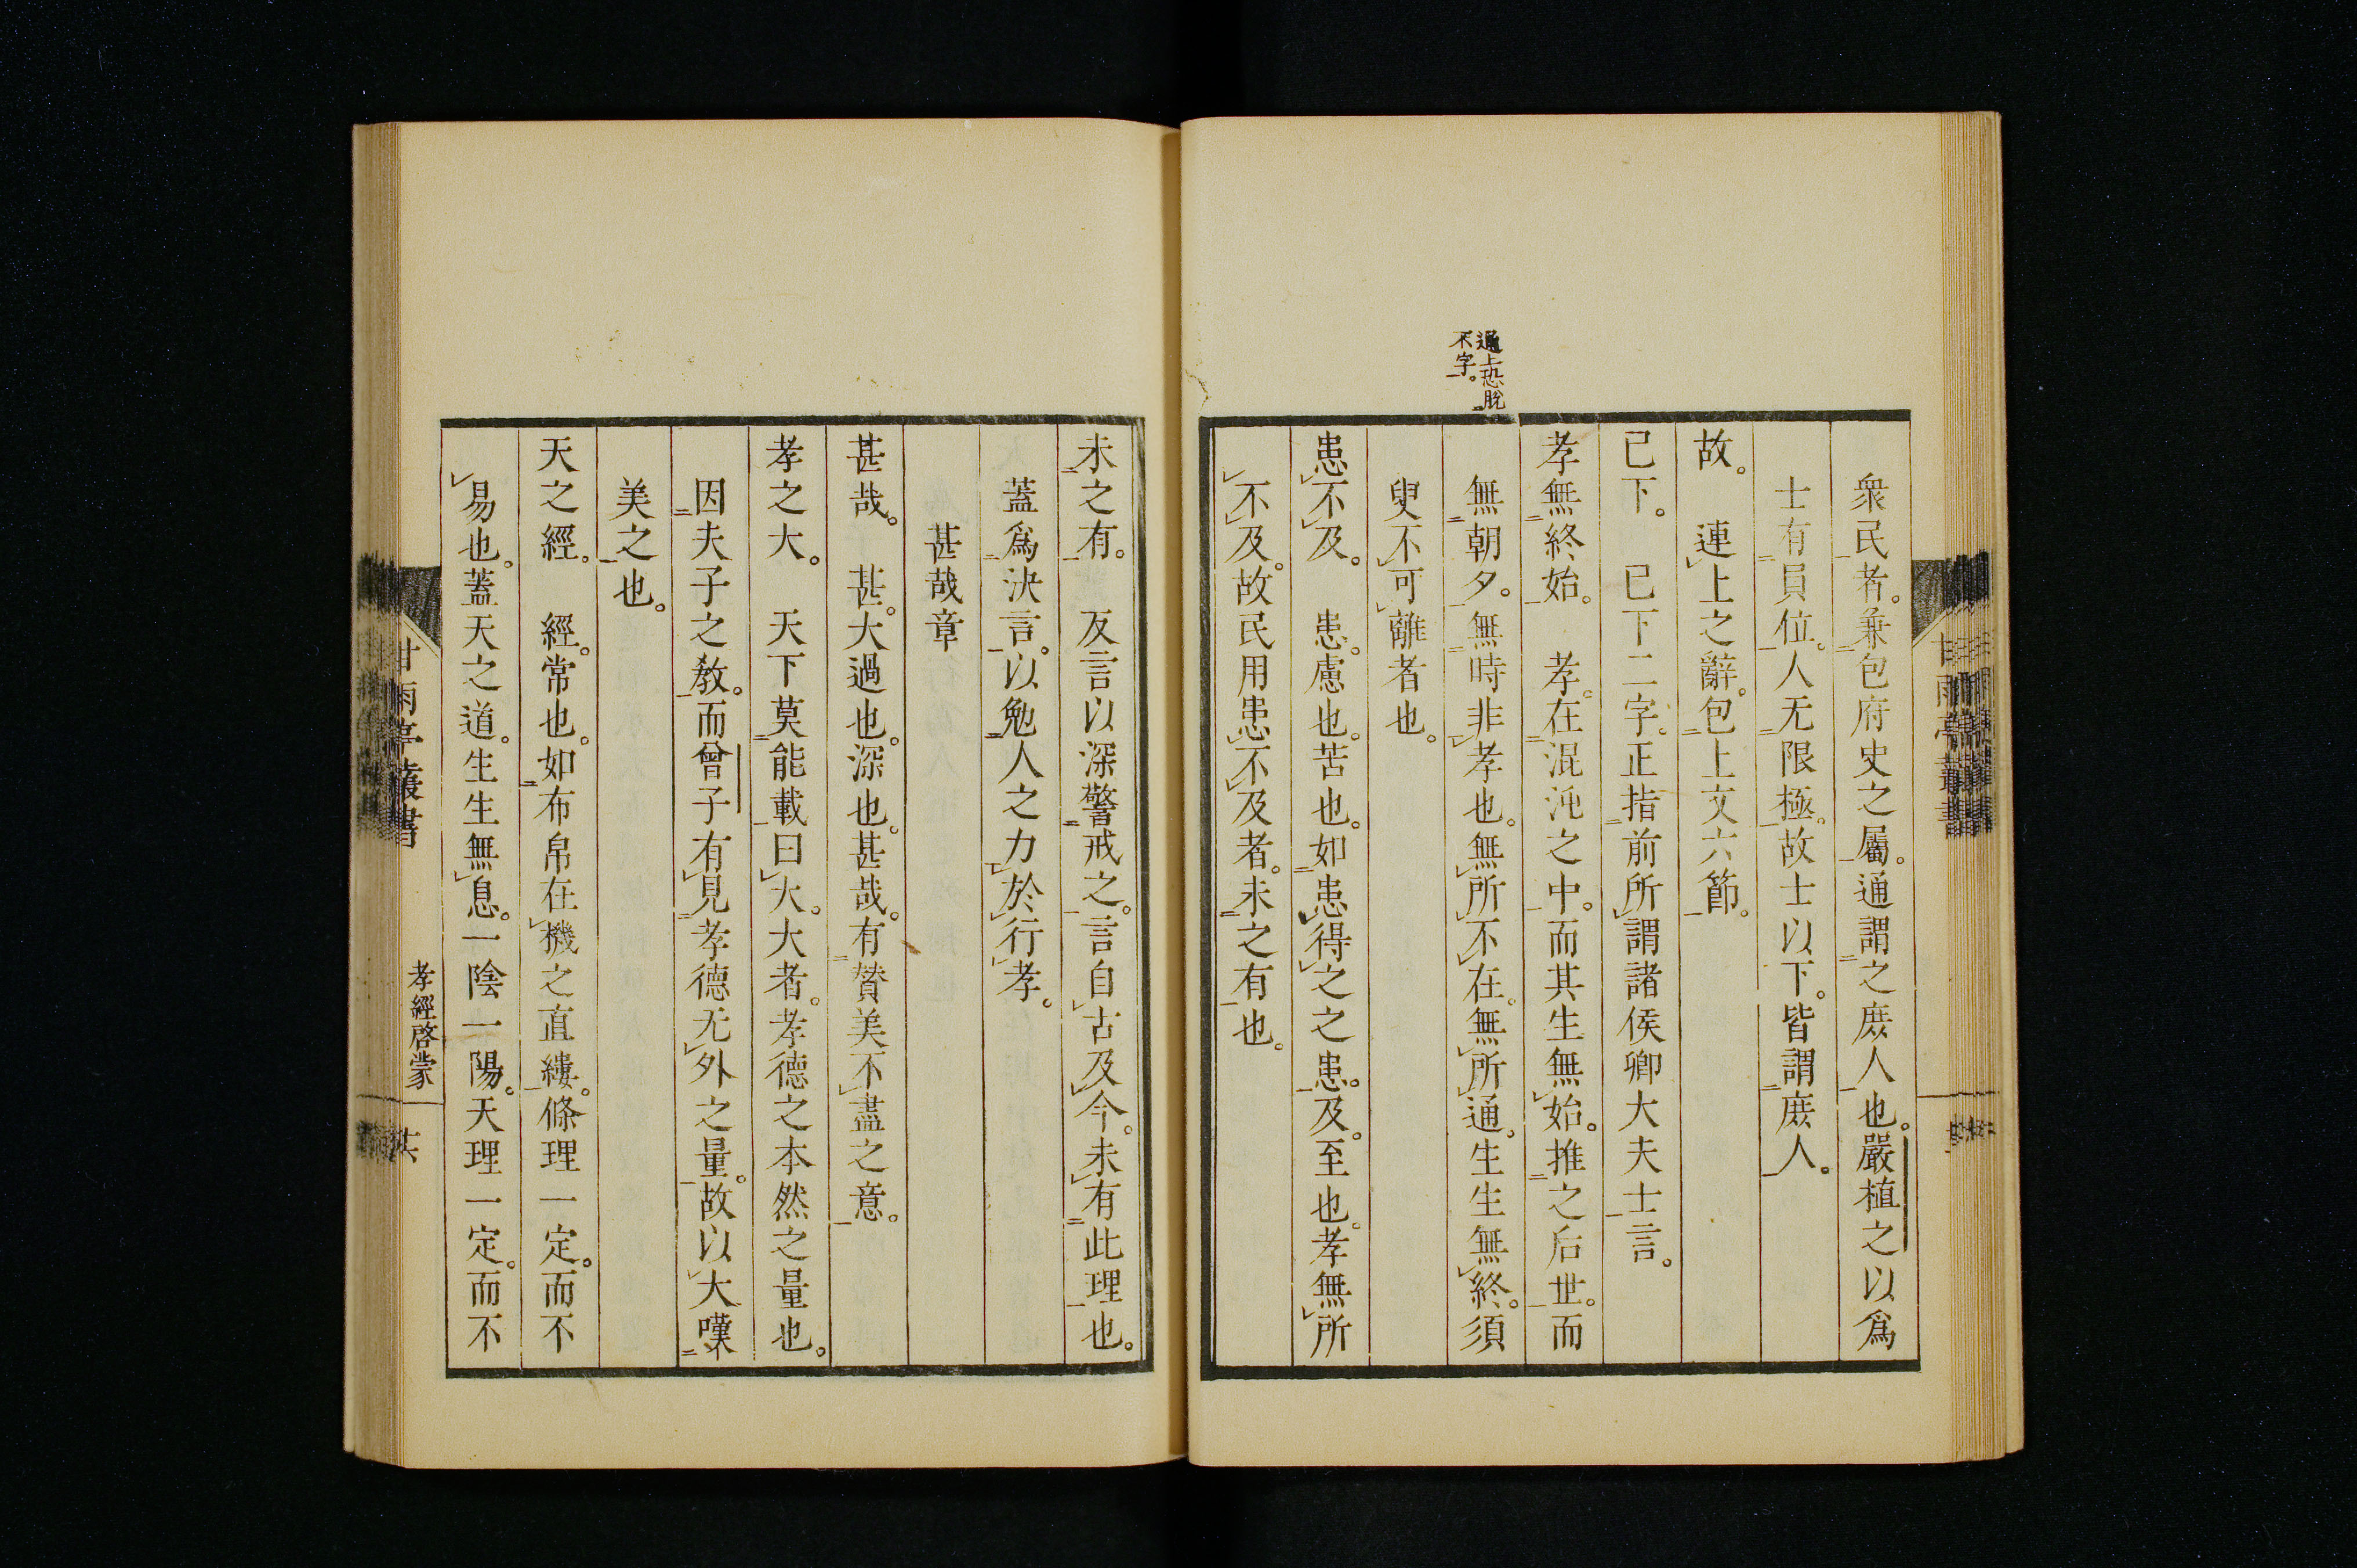 通上恐脫
不字。
衆民者。兼包府史之屬。通謂之庶人也。嚴植之以爲
士有員位。人无限極。故士以下。皆謂庶人。
故。　連上之辭。包上文六節。
已下。　已下二字。正指前所謂諸侯卿大夫士言。
孝無終始。　孝。在混沌之中。而其生無始。推之后世。而
無朝夕。無時非孝也。無所不在。無所通。生生無終。須
臾不可離者也。
患不及。　患。慮也。苦也。如患得之之患。及。至也。孝無所
不及。故民用患不及者。未之有也。
未之有。　反言以深警戒之。言自古及今。未有此理也。
蓋爲決言。以勉人之力於行孝。
甚哉章
甚哉。　甚。大過也。深也。甚哉。有贊美不盡之意。
孝之大。　天下莫能載曰大。大者。孝德之本然之量也。
因夫子之敎。而曾子有見孝德无外之量。故以大嘆
美之也。
天之經。　經。常也。如布帛在機之直縷。條理一定。而不
易也。蓋天之道。生生無息。一陰一陽。天理一定。而不
甘雨亭叢書
孝經啓蒙